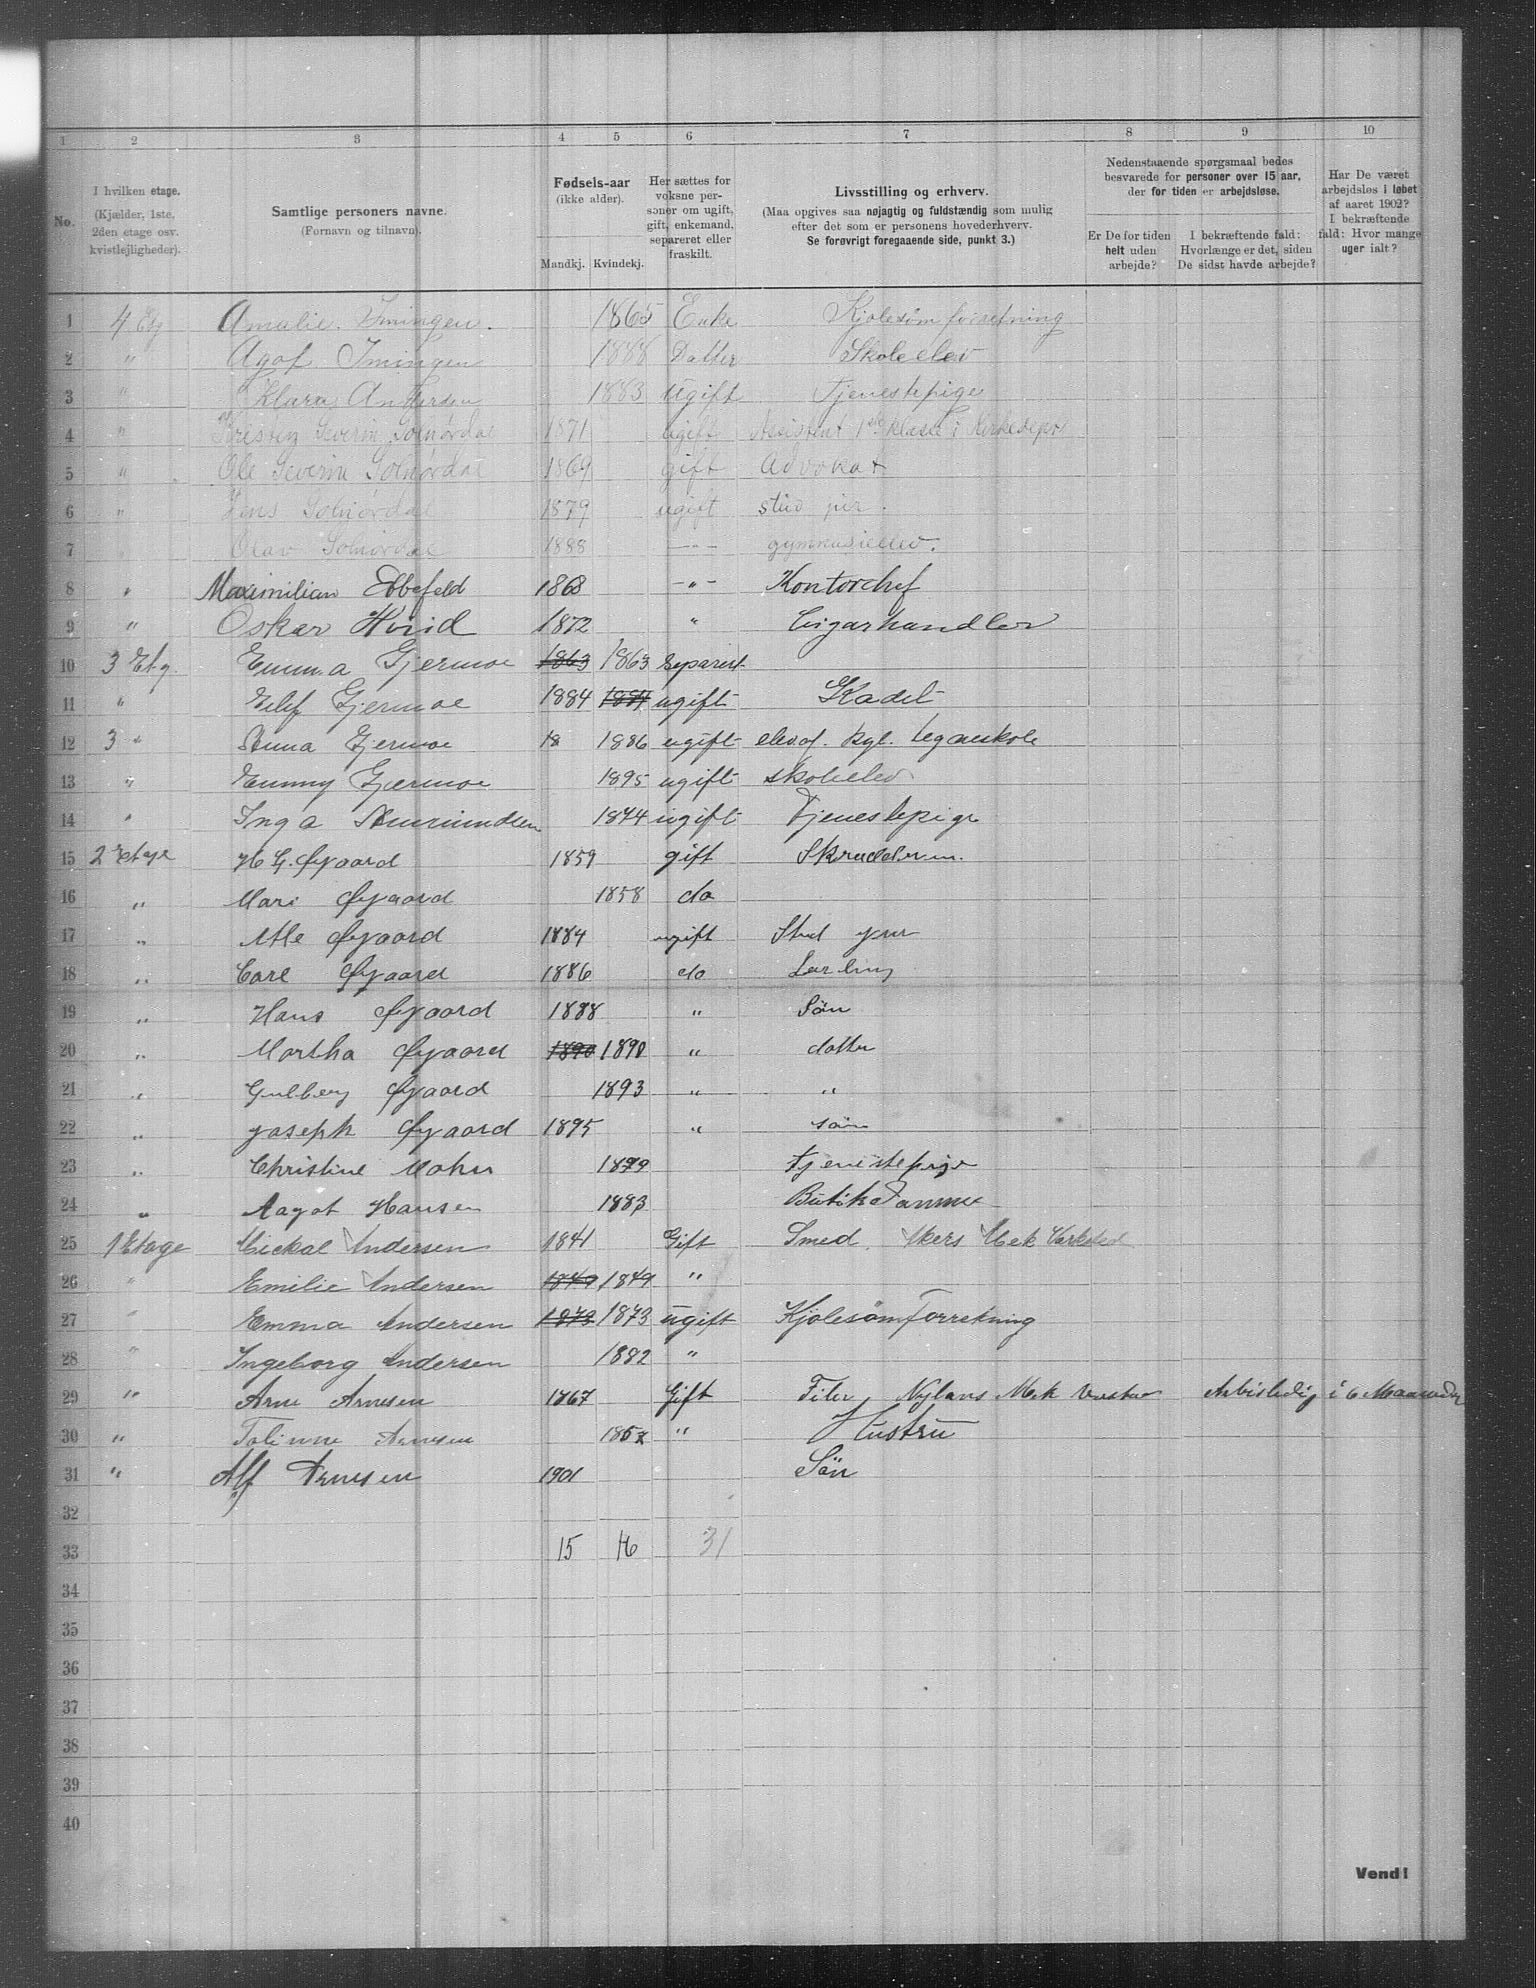 1 2 3 4 5 6 7 8 9 10
No. I hvilken etage. (Kjælder, 1ste, 2den etage osv. kvistlejligheder).
Samtlige personers navne. (Fornavn og tilnavn).
Fødsels-aar (ikke alder). Mandkj. Kvindekj.
Her sættes for voksne personer om ugift, gift, enkemand, separeret eller fraskilt.
Livsstilling og erhverv. (Maa opgives saa nøjagtig og fuldstændig som mulig efter det som er personens hovederhverv. Se forøvrigt foregaaende side, punkt 3.)
Nedenstaaende spørgsmaal bedes besvarede for personer over 15 aar, der for tiden er arbejdsløse.
Er De for tiden helt uden arbejde?
I bekræftende fald: Hvorlænge er det, siden De sidst havde arbejde?
Har De været arbejdsløs i løbet af aaret 1902? I bekræftende fald: Hvor mange uger ialt?
1 4 Etg Amalie Imingen. 1865 Enke Kjolesømforretning
2 " Agot Imingen 1888 Datter Skoleelev
3 " Klara Andersen 1883 Ugift Tjenestepige
4 " Kristen Severin Solnørdal 1871 ugift Assistent 1ste klasse i Kirkedept
5 " Ole Severin Solnørdal 1869 gift Advokat
6 " Jens Solnørdal 1879 ugift stud jur.
7 " Olav Solnørdal 1888 -"- gymnasieelev.
8 " Maximilian Ebbefeld 1868 -"- Kontorchef
9 " Oskar Hviid 1872 " Cigarhandler
10 3 Etg. Emma Gjermoe 1863 1863 separert
11 " Eilif Gjermoe 1884 1884 ugift Kadet
12 3 " Anna Gjermoe 18 1886 ugift elev af kgl. tegneskole
13 " Emmy Gjermoe 1895 ugift skoleelev
14 " Inga Amundsen 1874 ugift Tjenestepige
15 2 Etage H G. Øgaard 1859 gift Skrædderm.
16 " Mari Øgaard 1858 do
17 " Atle Øgaard 1884 ugift Stud jur
18 " Carl Øgaard 1886 do Lærling
19 " Hans Øgaard 1888 " Søn
20 " Martha Øgaard 1890 1890 " datter
21 " Gulberg Øgaard 1893 " "
22 " Joseph Øgaard 1895 " søn
23 " Christine Mohn 1879 tjenestepige
24 " Aagot Hansen 1883 Butikdamme
25 1 Etage Mickal Andersen 1841 Gift Smed Akers Mek Værksted
26 " Emilie Andersen 1849 1849 "
27 " Emma Andersen 1873 1873 Ugift Kjolesømforretning
28 " Ingeborg Andersen 1882 "
29 " Arne Arnesen 1867 Gift Filer Nylans Mek Arbisledig i 6 Maaneder
30 " Arnesen " Hustru
31 " Alf Arnesen 1901 Søn
32
33 15 16 31
34
35
36
37
38
39
40
Vend!